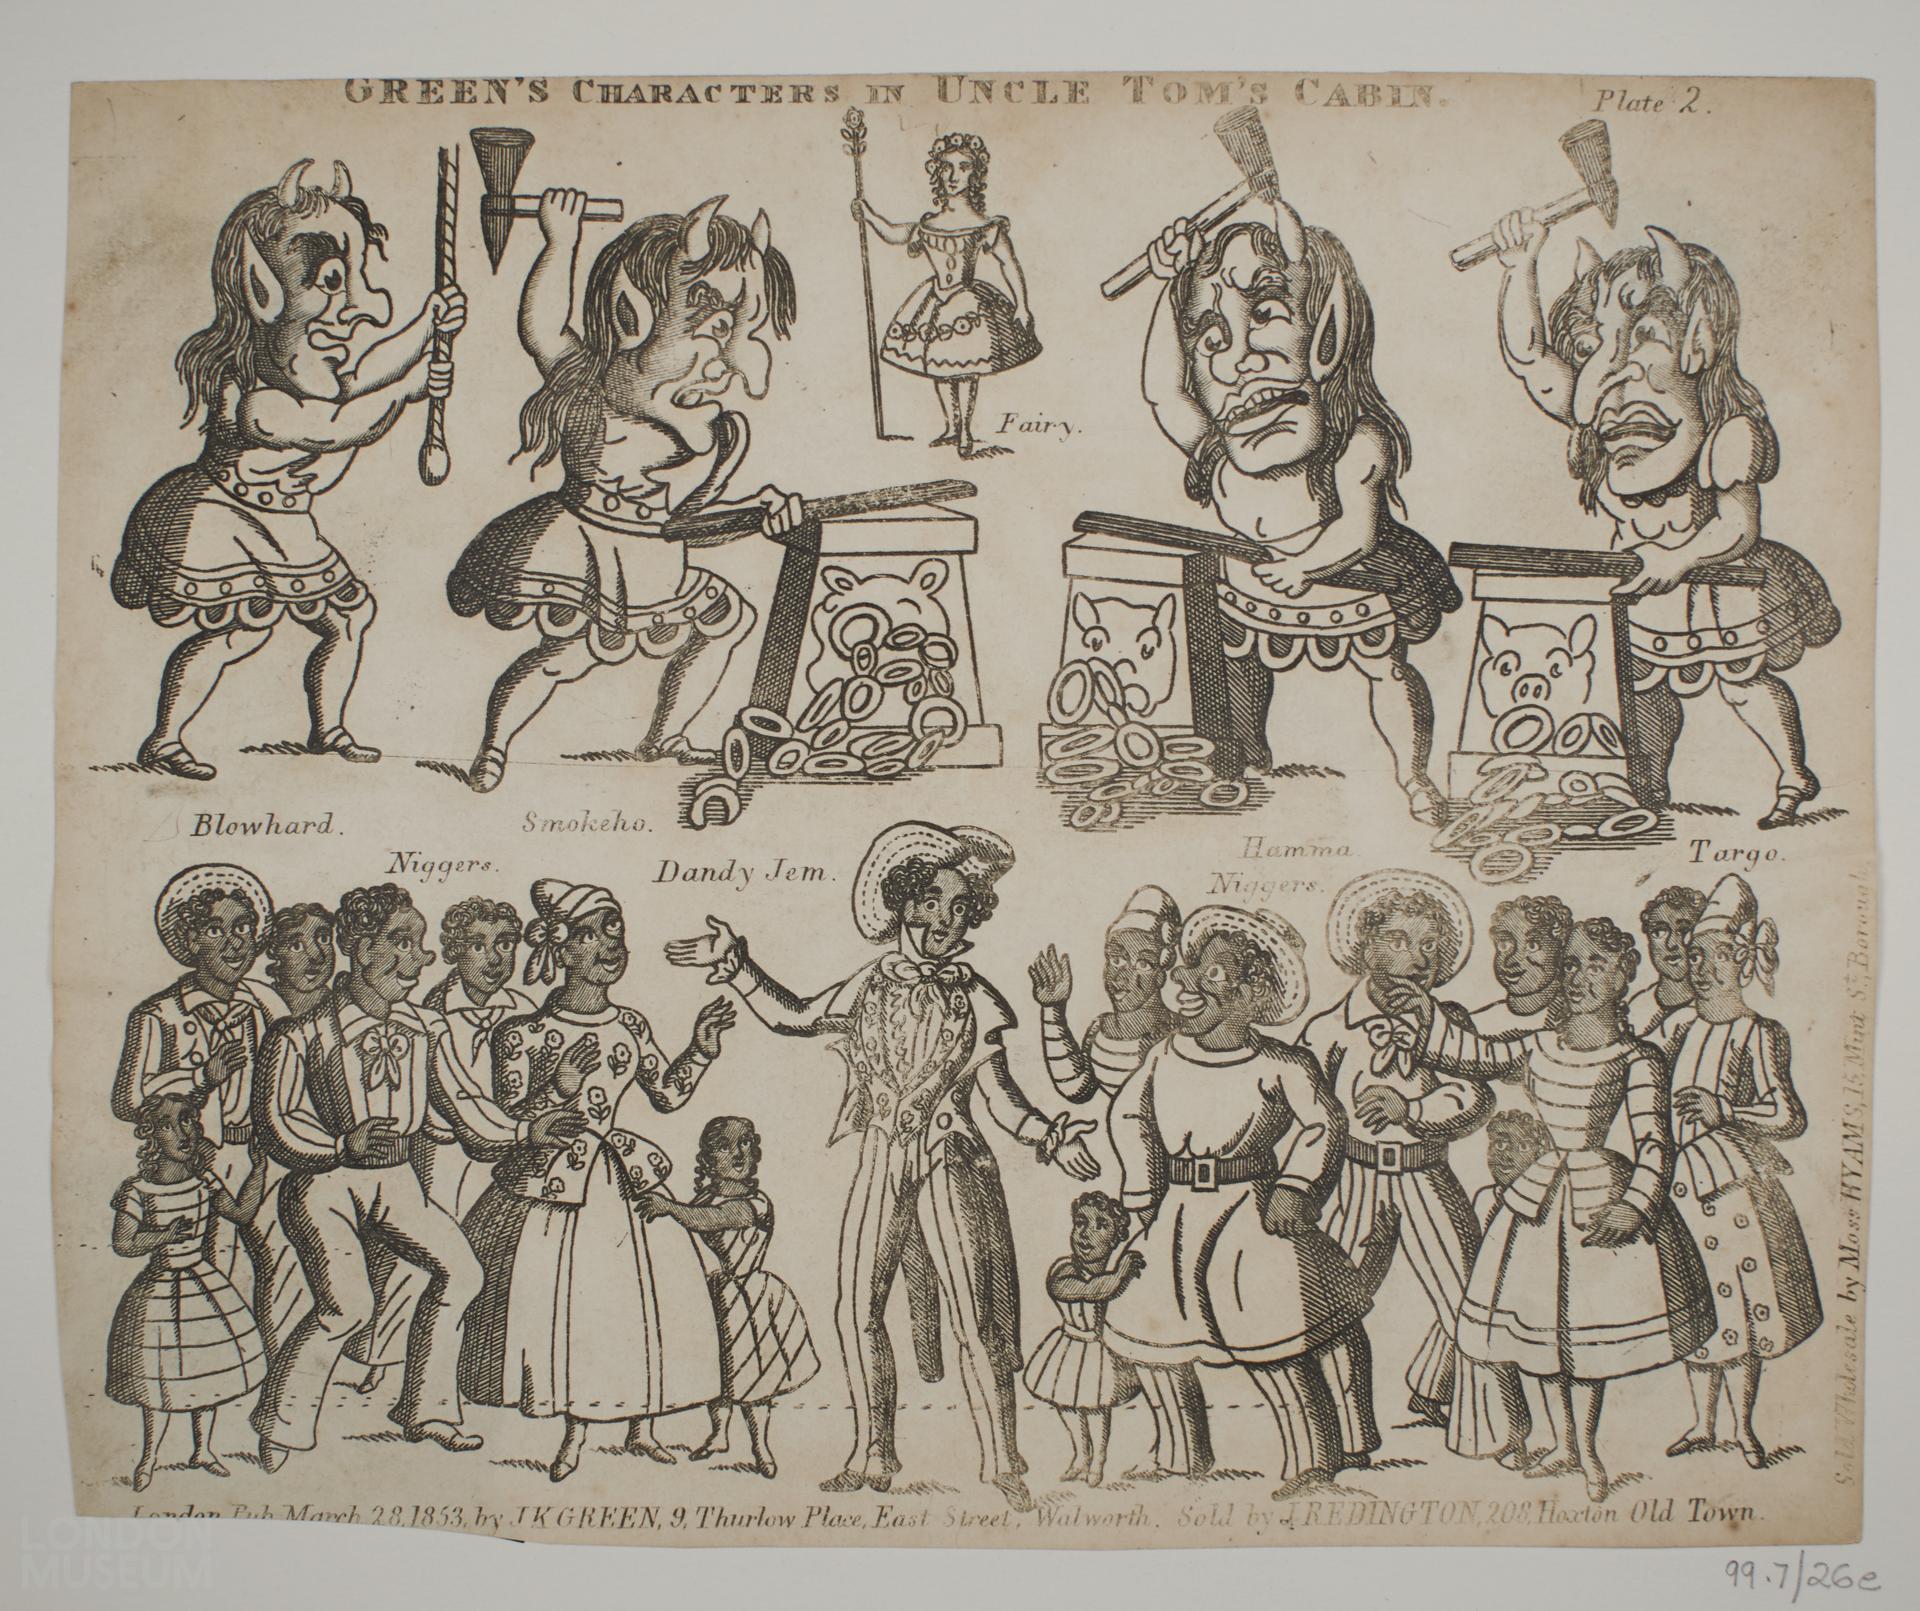 GREEN'S CHARACTERS IN UNCLE TOM'S CABIN.
Plate 2.
Fairy.
Blowhard.
Smokeho.
Hamma.
Targo.
Niggers.
Dandy Jem.
Niggers.
Sold Wholesale by Moss HYAMS, 15, Mint St, Borough.
London Pub March 28, 1853, by J K GREEN, 9, Thurlow Place, East Street, Walworth. Sold by J. REDINGTON, 208, Hoxton Old Town.
LONDON
MUSEUM
99.7/26e